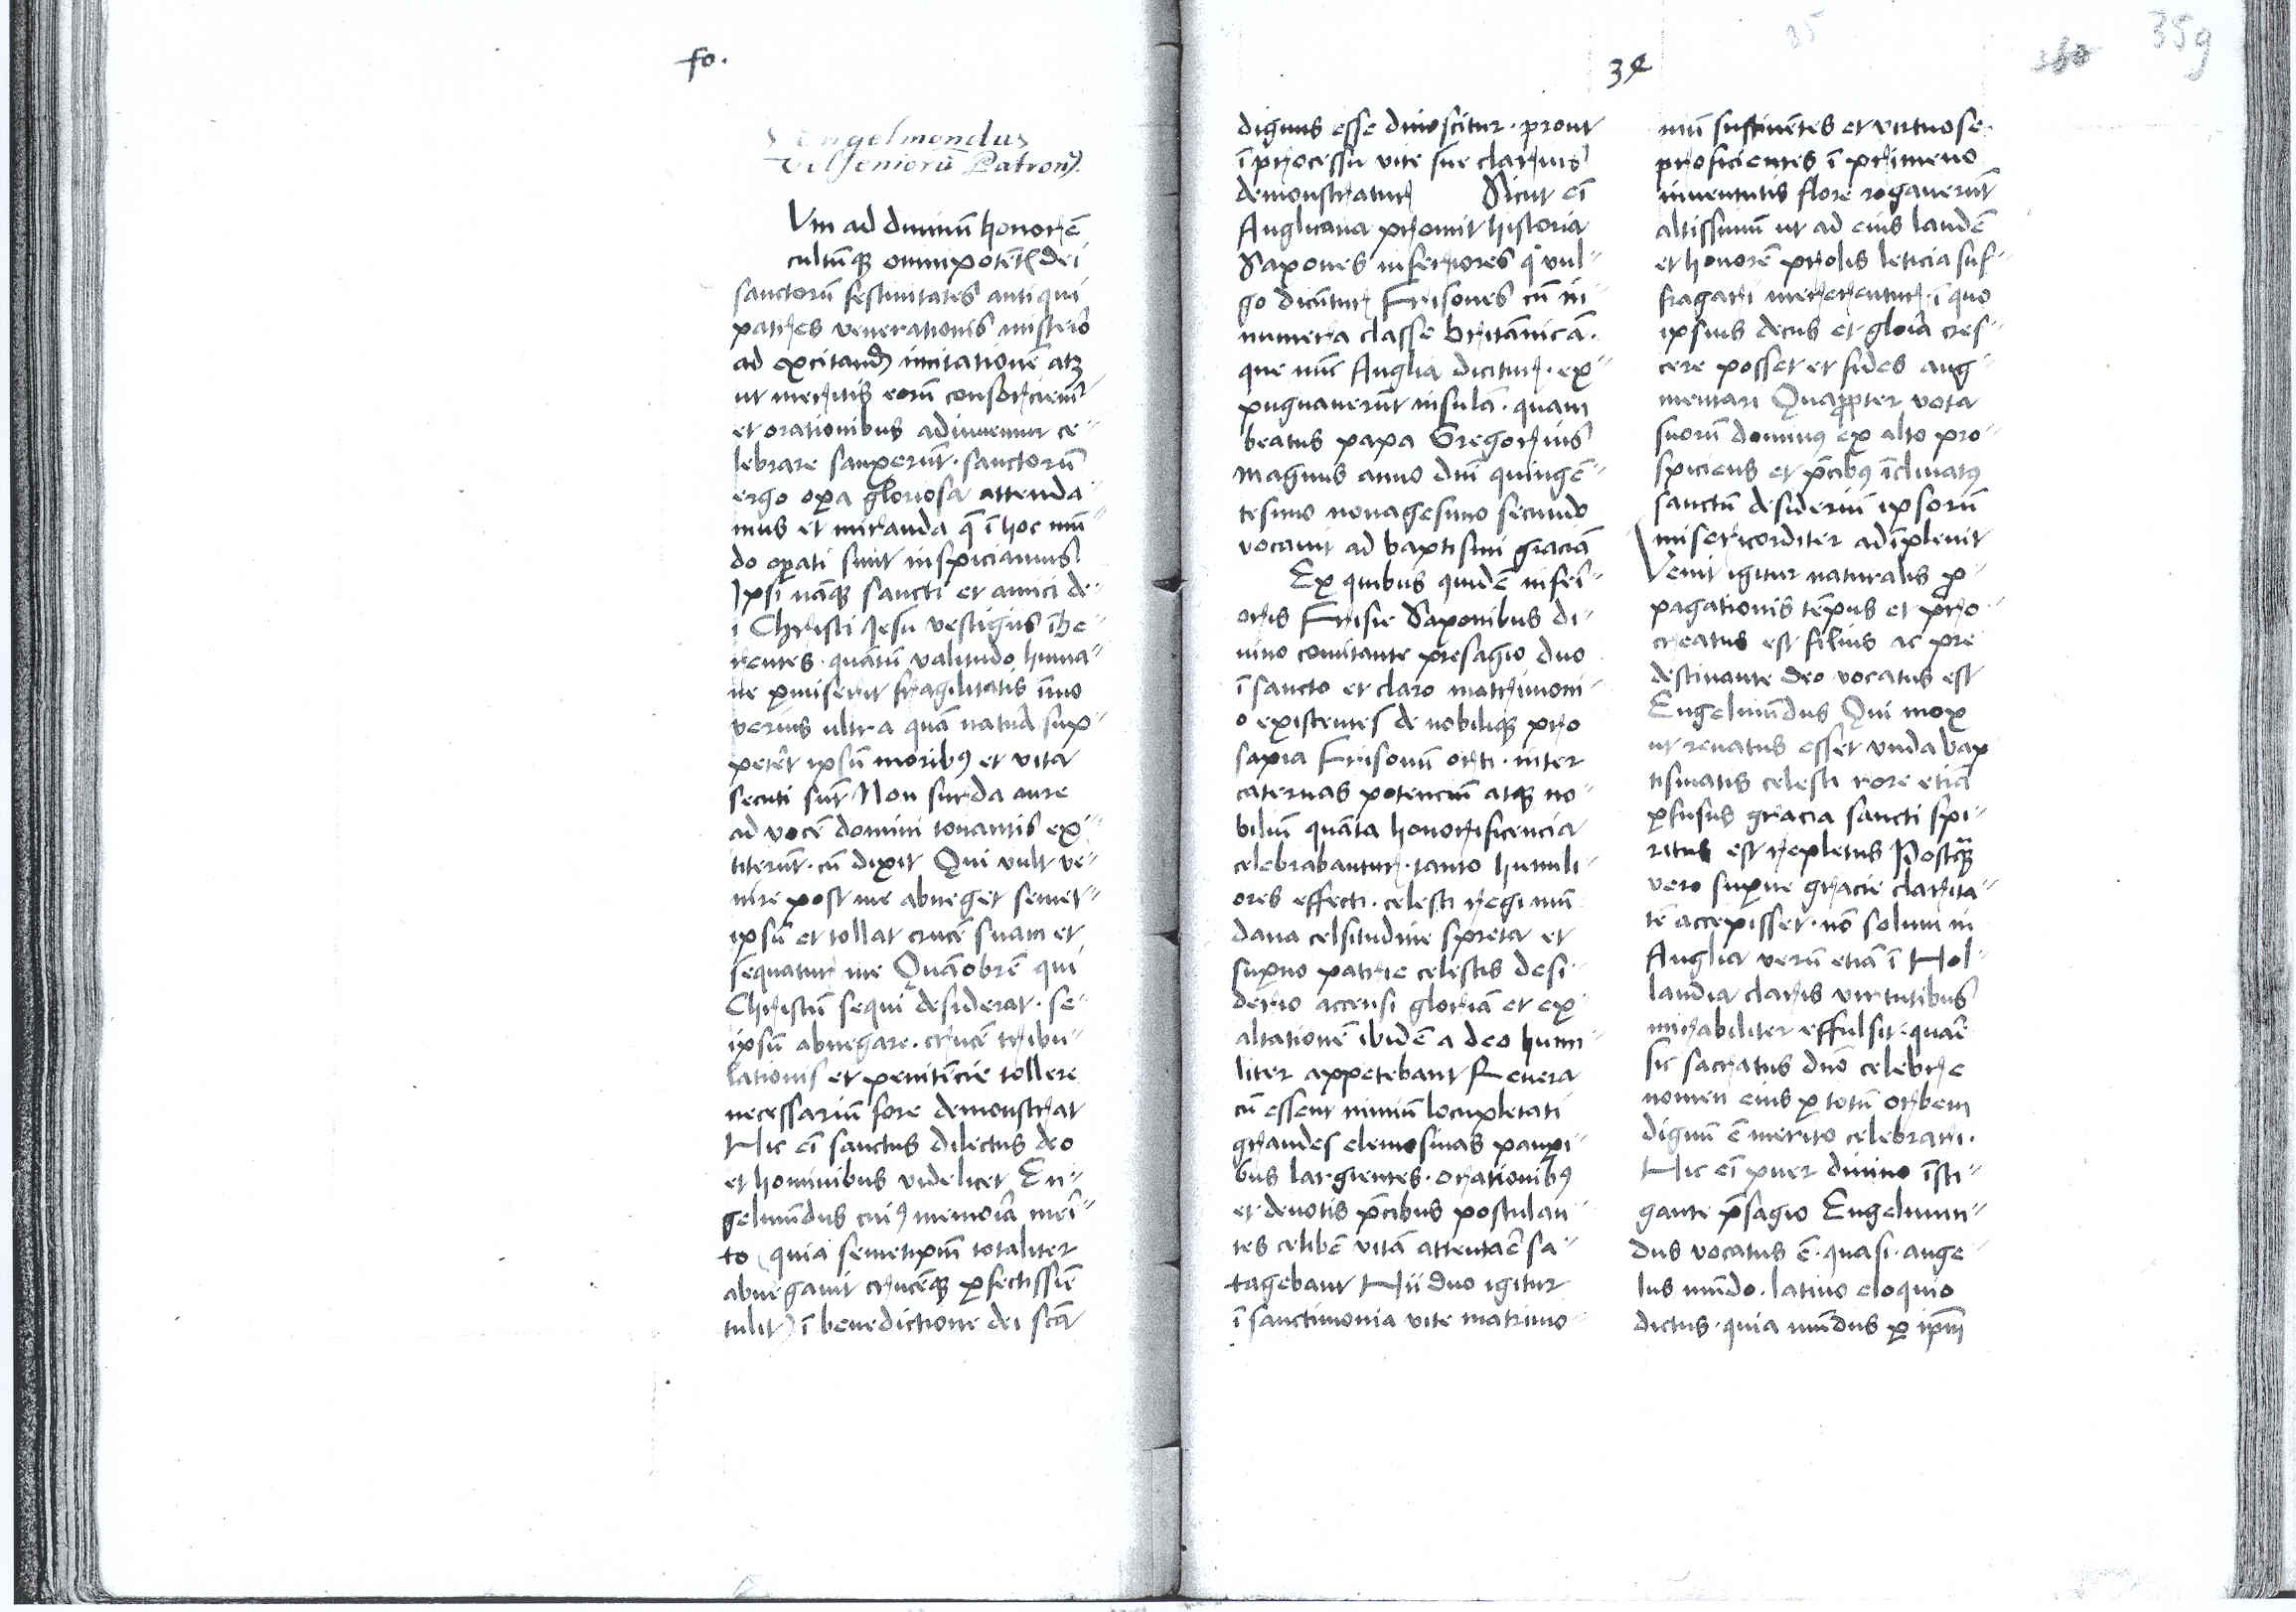 fo.
S Engelmondus
Velseniorū Patron9.
Vm ad diuinū honorē
cultūqꝫ omnipotētꝭ dei
sanctorū festiuitates antiqui
patres venerationis misterio
ad excitandā imitationē atqꝫ
ut meritis eorū consorciemr̄
et orationibus adiuuemur ce-
lebrare sanxerūt. sanctorū
ergo opa gloriosa attenda-
mus et miranda q̄ ī hoc mū-
do opati sunt inspiciamus
Ipsi nāqꝫ sancti et amici de-
i Christi Jesu vestigiis īhe-
rentes. quātū valitudo huma-
ne pmiserit fragilitatis īmo
verius ultra quā natura sup-
peteret ipsū moribꝰ et vita
secuti sūt Non surda aure
ad vocē domini tonantis ex-
titerūt. cū dixit Qui vult ve-
nire post me abneget semet-
ipsū et tollat crucē suam et
sequatur me Quāobrē qui
Christū sequi desiderat. se-
ipsū abnegare. crucē tribu-
lationis et penitēcie tollere
necessariū fore demonstrat
Hic eī sanctus dilectus deo
et hominibus videlicet En-
gelmūdus cuiꝰ memoria meri-
to (quia semetipm̄ totaliter
abnegauit crucēqꝫ pfectissīe
tulit) ī benedictione dei scā
34
85
360
359
dignus esse dinoscitur. prout
ī processu vite sue clarius
demonstratur Sicut eī
Anglicana promit historia
Saxones inferiores qͥ vul-
go dicūtur Frisones cū in-
numera classe britānicā.
que nūc Anglia dicitur. ex-
pugnauerūt insulā. quam
beatus papa Gregorius
magnus anno dn̄i quingē-
tesimo nonagesimo secundo
vocauit ad baptismi graciā
Ex quibus quidē inferi-
oris Frisie Saxonibus di-
uino comitante presagio duo
ī sancto et claro matrimoni-
o existentes de nobiliqꝫ pro
sapia Frisonū orti. inter
cateruas potenciū atqꝫ no-
biliū quāta honorificencia
celebrabantur. tanto humili-
ores effecti. celesti regi mū
dana celsitudine spreta et
supno patrie celestis desi-
derio accensi gloriā et ex-
altationē ibidē a deo humi-
liter appetebant Reuera
cū essent nimiū locupletati
grandes elemosinas paupi-
bus largientes. orationibꝰ
et deuotis p̄cibus postulan-
tes celibē vitā attentare sa-
tagebant Hii duo igitur
ī sanctimonia vite matrimo-
niū sustinētes et virtuose.
proficientes ī primeuo
iuuentutis flore rogauerūt
altissimū ut ad eius laudē
et honorē prolis leticia suf-
fragari mererentur. ī quo
ipsius decus et gloria cres-
cere posset et fides aug-
mentari Quappter vota
suorū dominꝰ ex alto pro-
spiciens et p̄cibꝰ īclinatꝰ
sanctū desideriū ipsorū
misericorditer adīpleuit
Venit igitur naturalis p-
pagationis tēpus et pro-
creatus est filius ac pre
destinante deo vocatus est
Engelmūdus Qui mox
ut renatus esset unda bap
tismatis celesti rore etiā
pfusus gracia sancti spi-
ritus est repletus Postqꝫ
vero supne gracie clarita-
tē accepisset. nō solum in
Anglia verū etiā ī Hol-
landia claris virtutibus
mirabiliter effulsit. quare
sic sacratus dn̄o celebre
nomen eius p totū orbem
dignū ē merito celebrari.
Hic eī puer diuino īsti-
gante p̄sagio Engelmun-
dus vocatus ē. quasi. ange-
lus mūdo. latino eloquio
dictus. quia mūdus p ipm̄